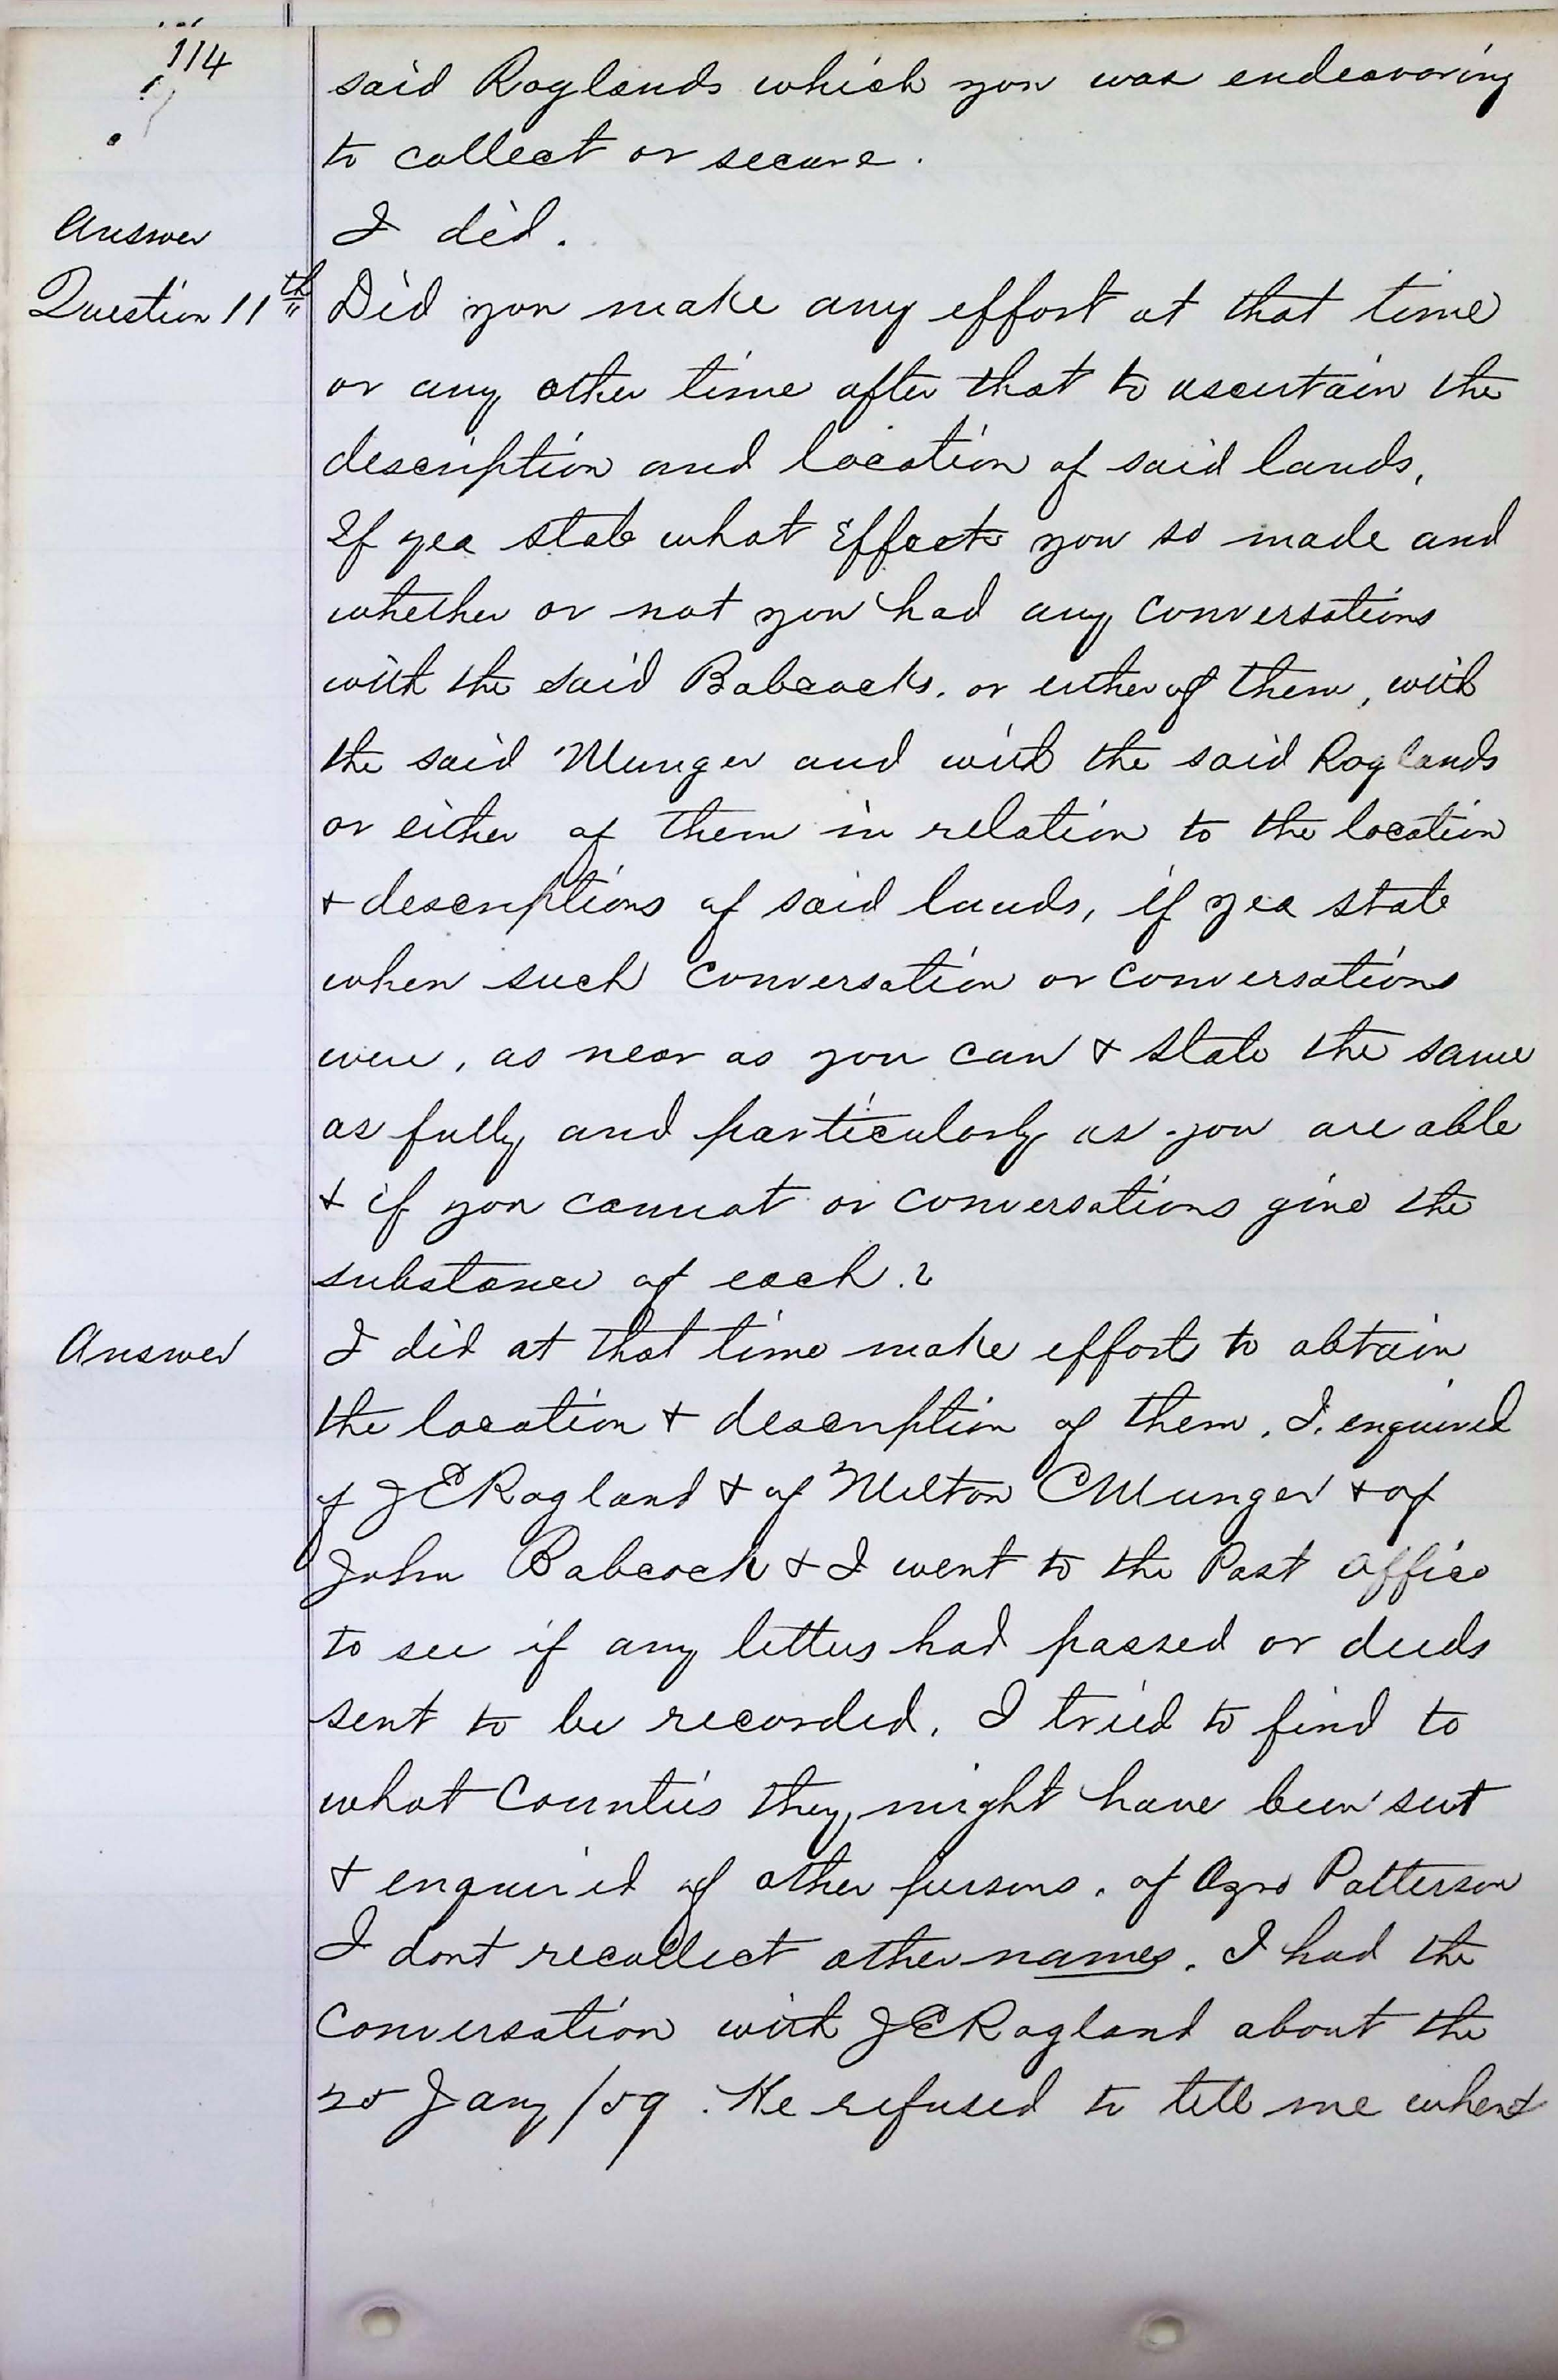 114
said Raglands which you was endeavoring
to collect or secure.
Answer I did.
Question 11th Did you make any effort at that time
or any other time after that to ascertain the
description and location of said lands,
If yea state what Effects you so made and
whether or not you had any conversations
with the said Babcocks. or either of them, with
the said Munger and with the said Raglands
or either of them in relation to the location
& descriptions of said lands, if yea state
when such conversation or conversations
were, as near as you can & state the same
as fully and particularly as you are able
& if you cannot or conversations give the
substance of each.?
Answer I did at that time make efforts to obtain
the location & description of them. I. enquired
of J E Ragland & of Milton C Munger & of
John Babcock & I went to the Post office
to see if any letters had passed or deeds
sent to be recorded. I tried to find to
what Counties they might have been sent
& enquired of other persons. of Ozro Patterson
I dont recollect other names. I had the
Conversation with J E Ragland about the
25 Jany /59. He refused to tell me where